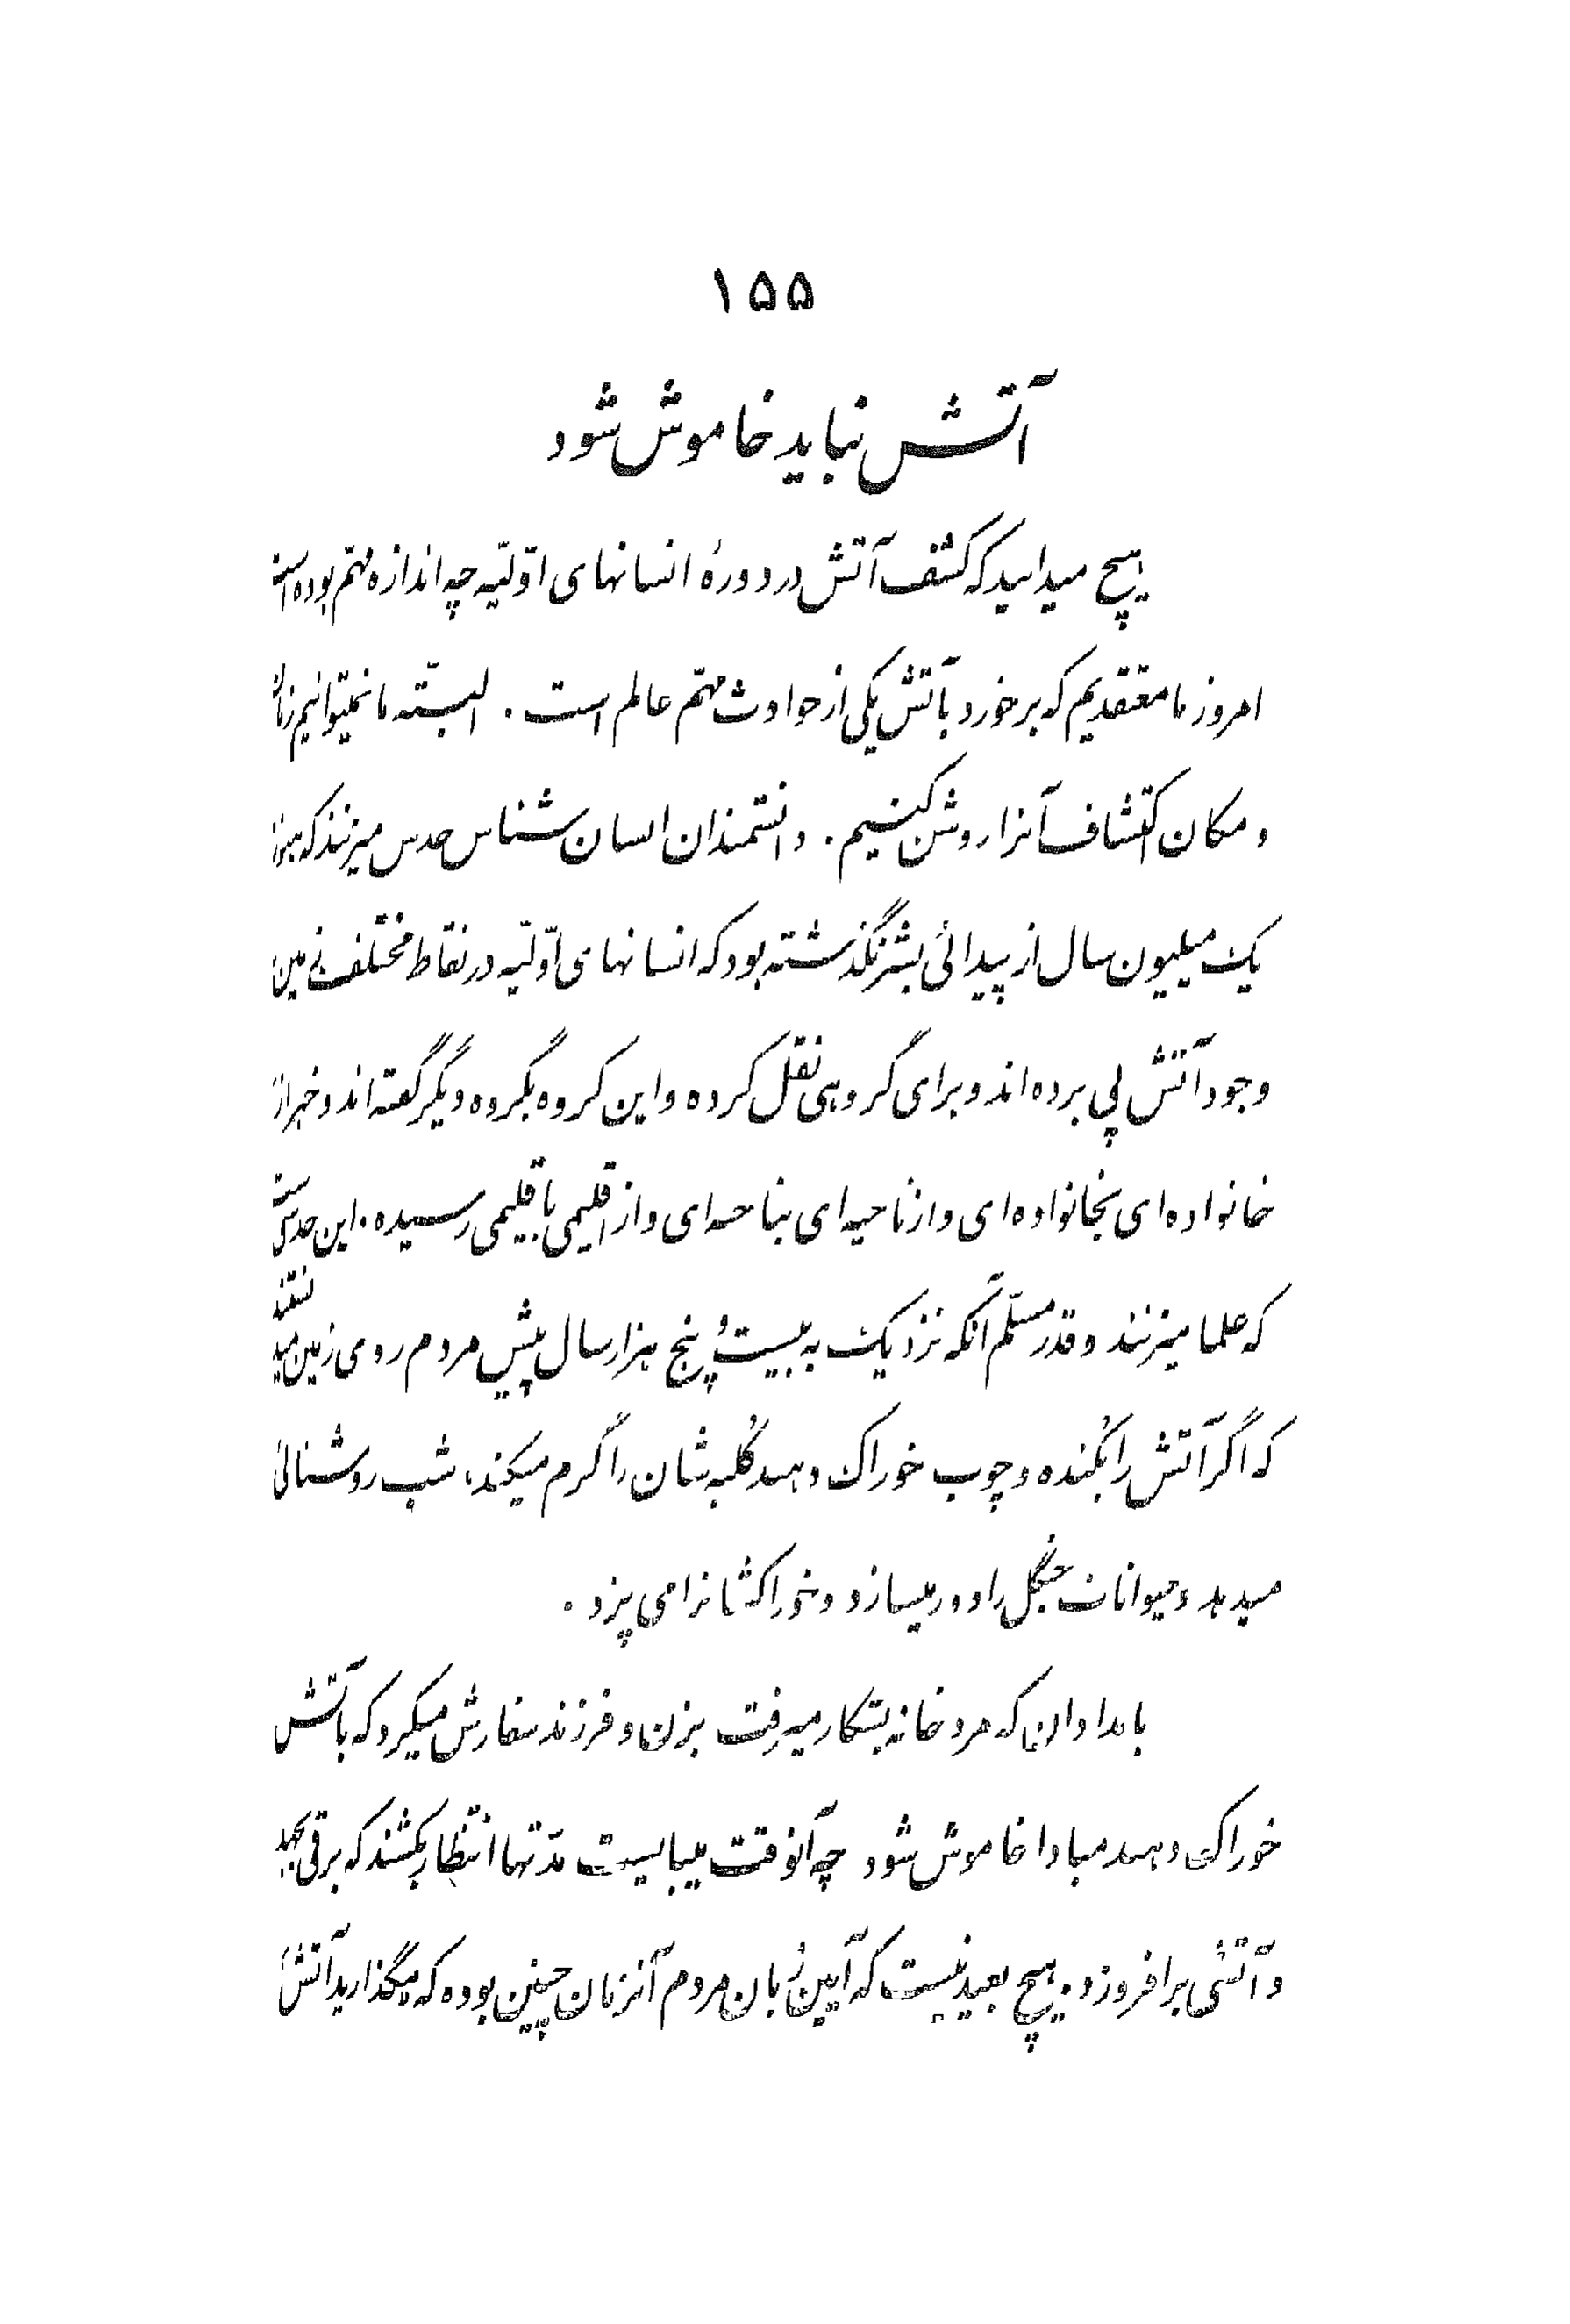 ۱۵۵
آتش نباید خاموش شود
هیچ میدانید که کشف آتش در دورهٔ انسانهای اوّلیّه چه اندازه مهمّ بوده است
امروز ما معتقدیم که برخورد بآتش یکی از حوادث مهمّ عالم است . البتّه ما نمیتوانیم زمان
و مکان اکتشاف آنرا روشن کنیم . دانشمندان انسان شناس حدس میزنند که هنوز
یک میلیون سال از پیدائی بشر نگذشته بود که انسانهای اوّلیّه در نقاط مختلف زمین
وجود آتش پی برده اند و برای گروهی نقل کرده و این گروه بگروه دیگر گفته اند و خبر از
خانواده ای بخانواده ای و از ناحیه ای بناحیه ای و از اقلیمی باقلیمی رسیده . این حدسی است
که علما میزنند و قدر مسلّم آنکه نزدیک به بیست و پنج هزار سال پیش مردم روی زمین میدانستند
که اگر آتش را بکُنده و چوب خوراک دهند کُلبه شان را گرم میکند ، شب روشنائی
میدهد و حیوانات جنگل را دور میسازد و خوراکشانرا می پزد .
بامدادان که مرد خانه بشکار میرفت بزن و فرزند سفارش میکرد که بآتش
خوراک دهند مبادا خاموش شود چه آنوقت میبایست مدّتها انتظار بکشند که برقی بجهد
و آتشی برافروزد . هیچ بعید نیست که آیین زبان مردم آنزمان چنین بوده که میگذارید آتش